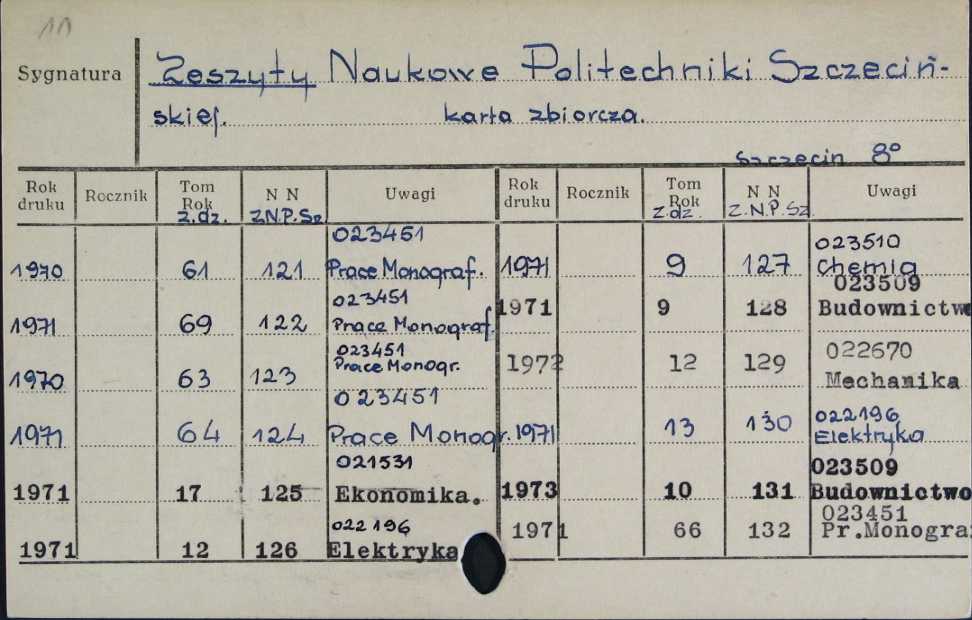 11
Sygnatura Zeszyty Naukowe Politechniki Szczeciń-
skiej. karta zbiorcza.
Szczecin 8°
Rok druku Rocznik Tom Rok z.dz. N N Z.N.P.Sz. Uwagi Rok druku Rocznik Tom Rok z.dz. N N Z.N.P.Sz. Uwagi
023451 023510
1970 61 121 Prace Monograf. 1971 9 127 Chemia
023451 023509
1971 69 122 Prace Monograf. 1971 9 128 Budownictwo
023451 022670
1970 63 123 Prace Monogr. 1972 12 129 Mechanika
023451 022196
1971 64 124 Prace Monogr. 1971 13 130 Elektryka
021531 023509
1971 17 125 Ekonomika. 1973 10 131 Budownictwo
022196 023451
1971 12 126 Elektryka 1971 66 132 Pr.Monogra